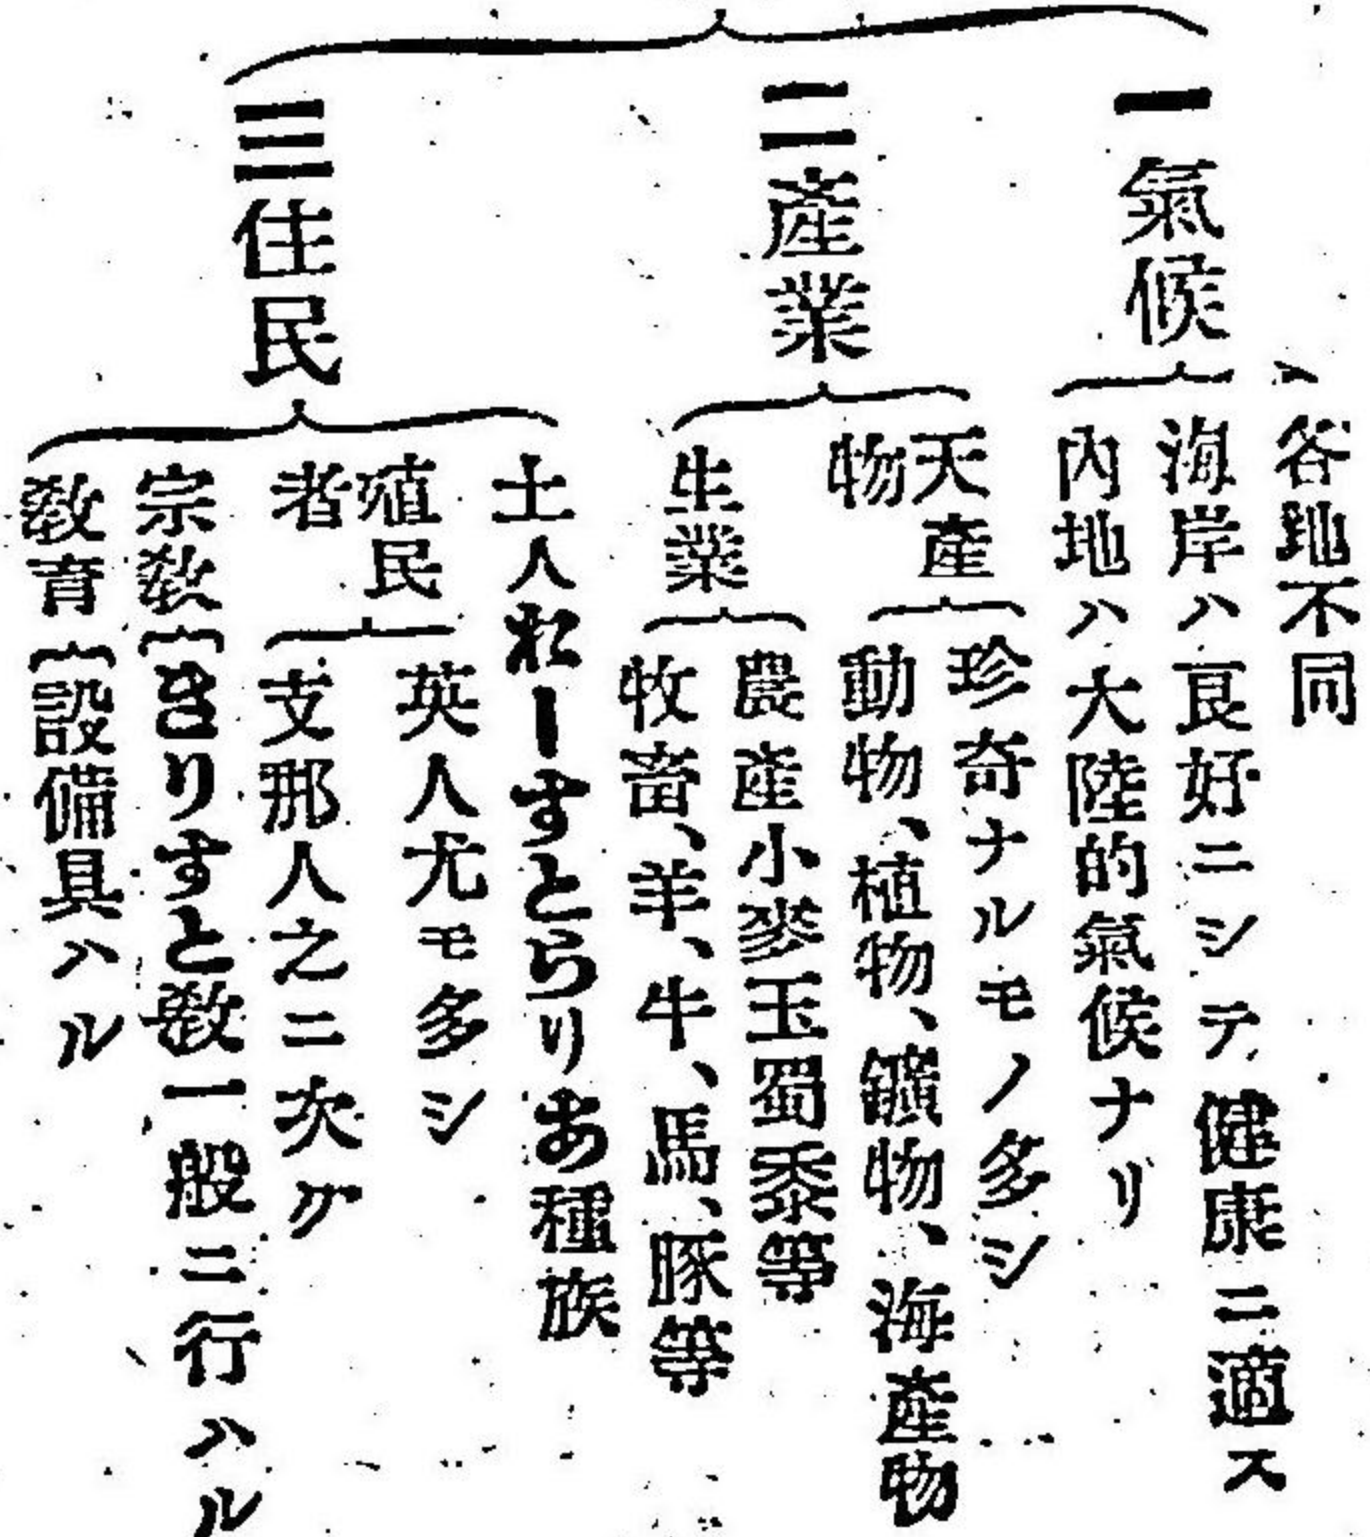 一氣候
各地不同
海岸ハ良好ニシテ健康ニ適ス
內地ハ大陸的氣候ナリ
二產業
天產物
珍奇ナルモノ多シ
動物、植物、鑛物、海產物
生業
農產小麥玉蜀黍等
牧畜、羊、牛、馬、豚等
三住民
土人おーすとらりあ種族
殖民者
英人尤モ多シ
支那人之ニ次グ
宗敎
きりすと敎一般ニ行ハル
敎育
設備具ハル